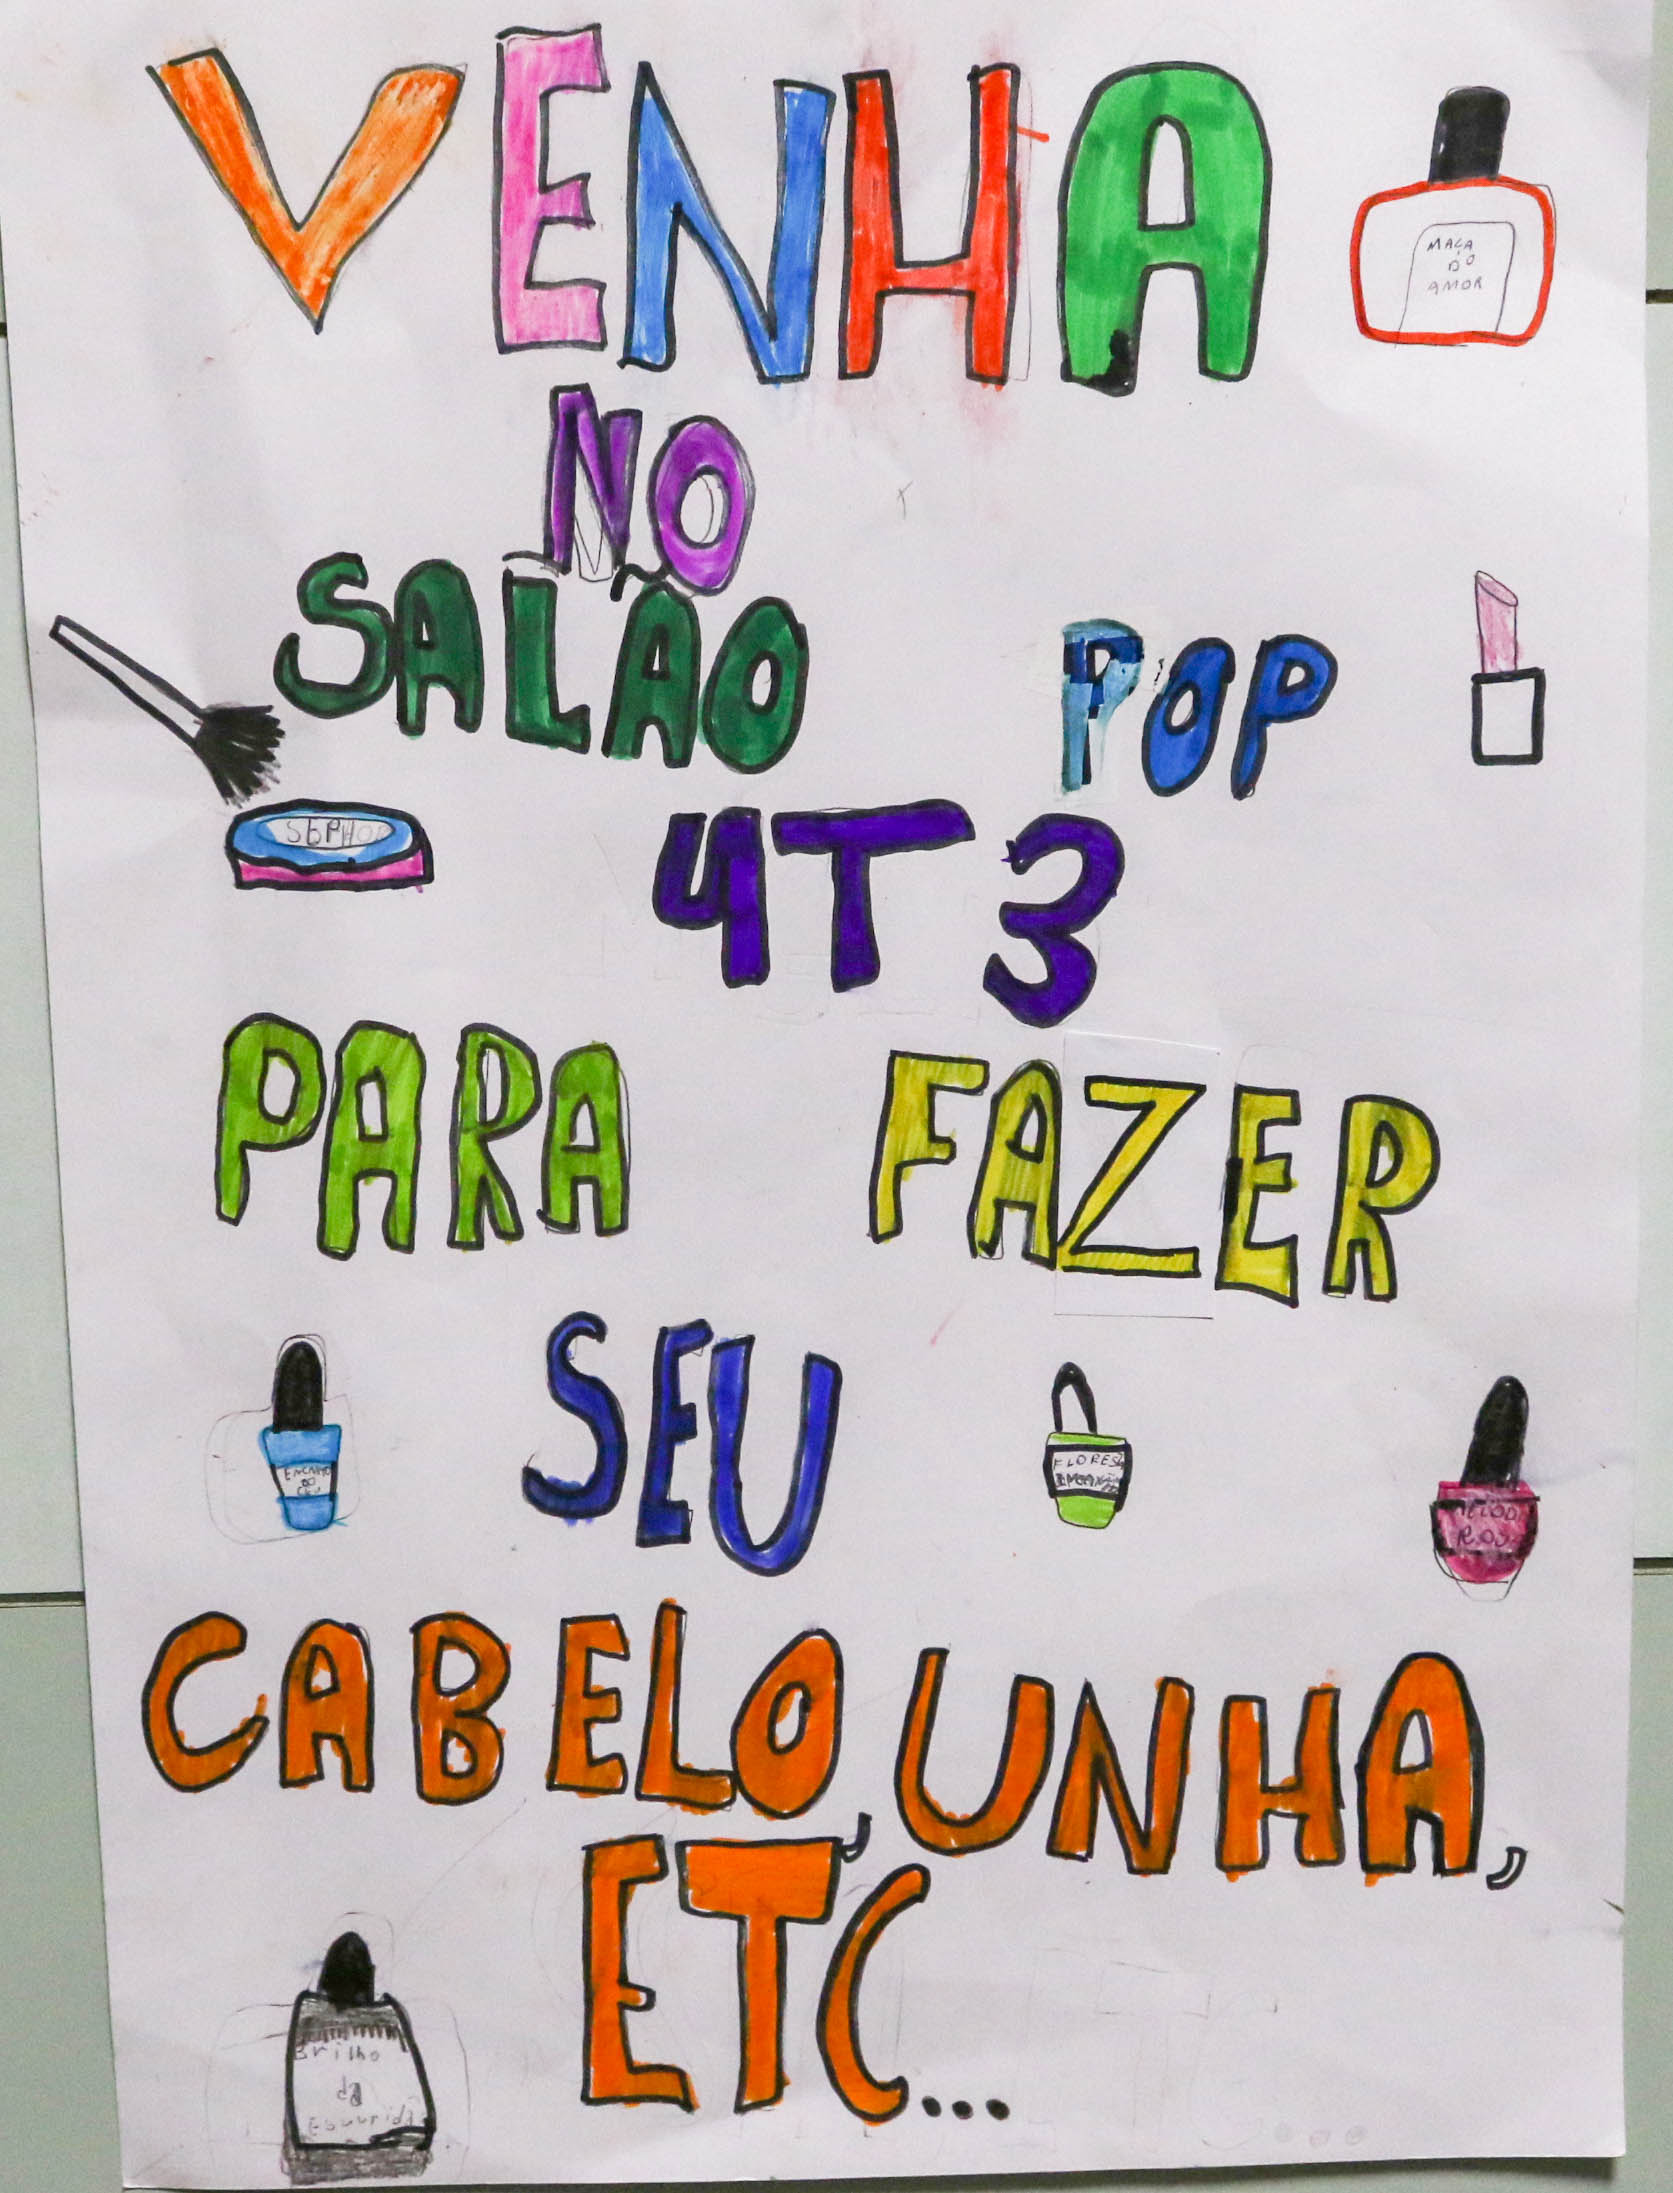 VENHA
MAÇA
DO
AMOR
NO
SALÃO POP
SEPHO
4T3
PARA FAZER
SEU
ENCANTO
DO
CEU
FLORES
ROSA
CABELO, UNHA,
ETC...
Brilho
da
Escurida